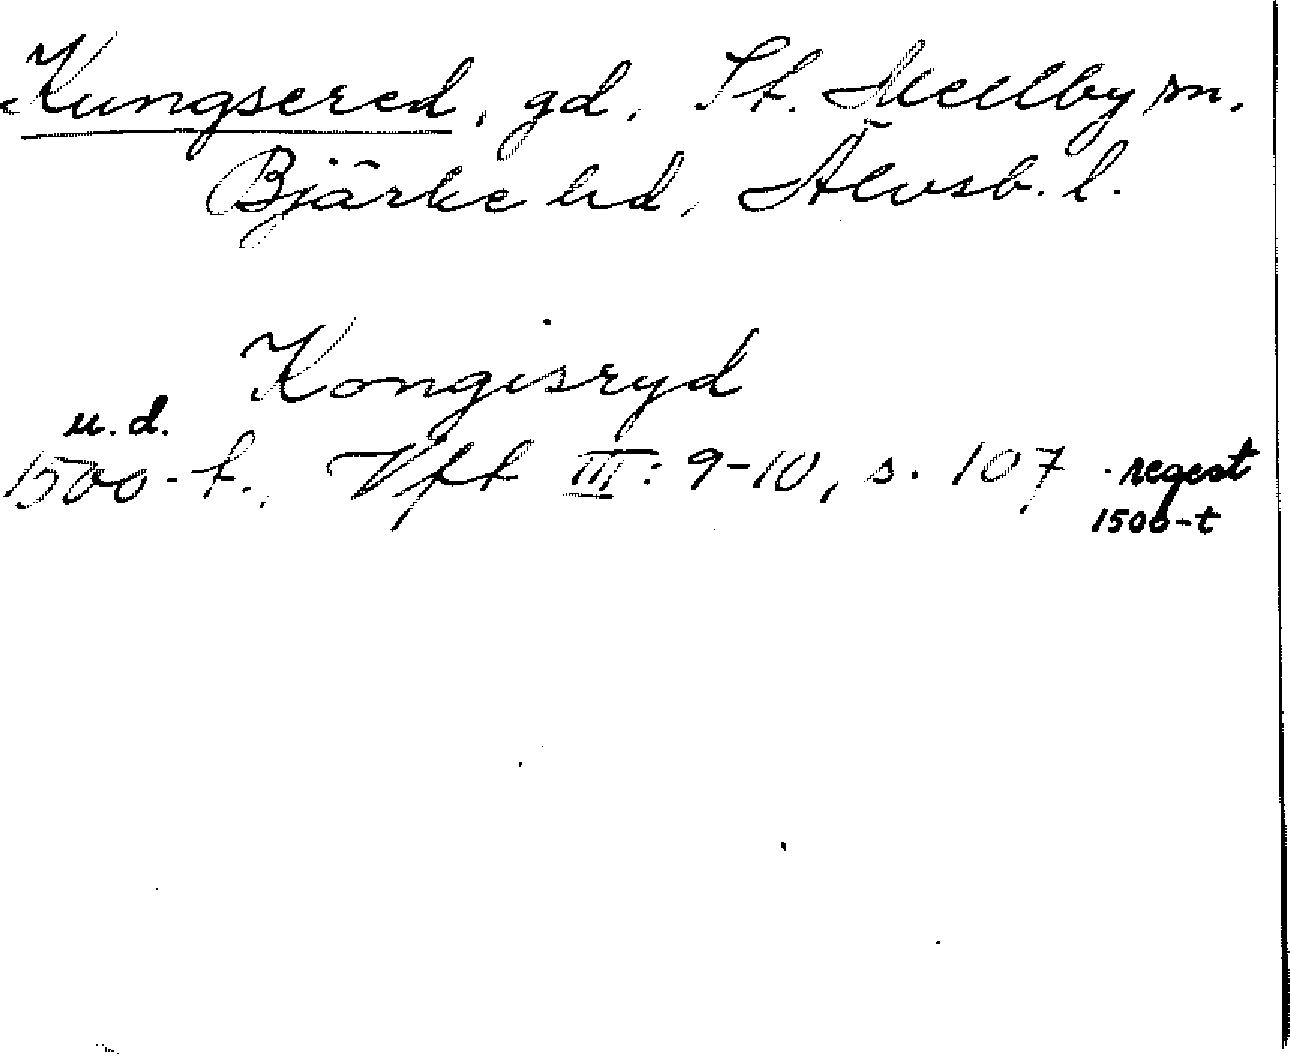 Kungsered, gd, St. Mellby sn.
Bjärke hd, Älvsb. l.
Kongisryd
u.d.
1500-t., Vft III: 9-10, s. 107 . regest
1500-t